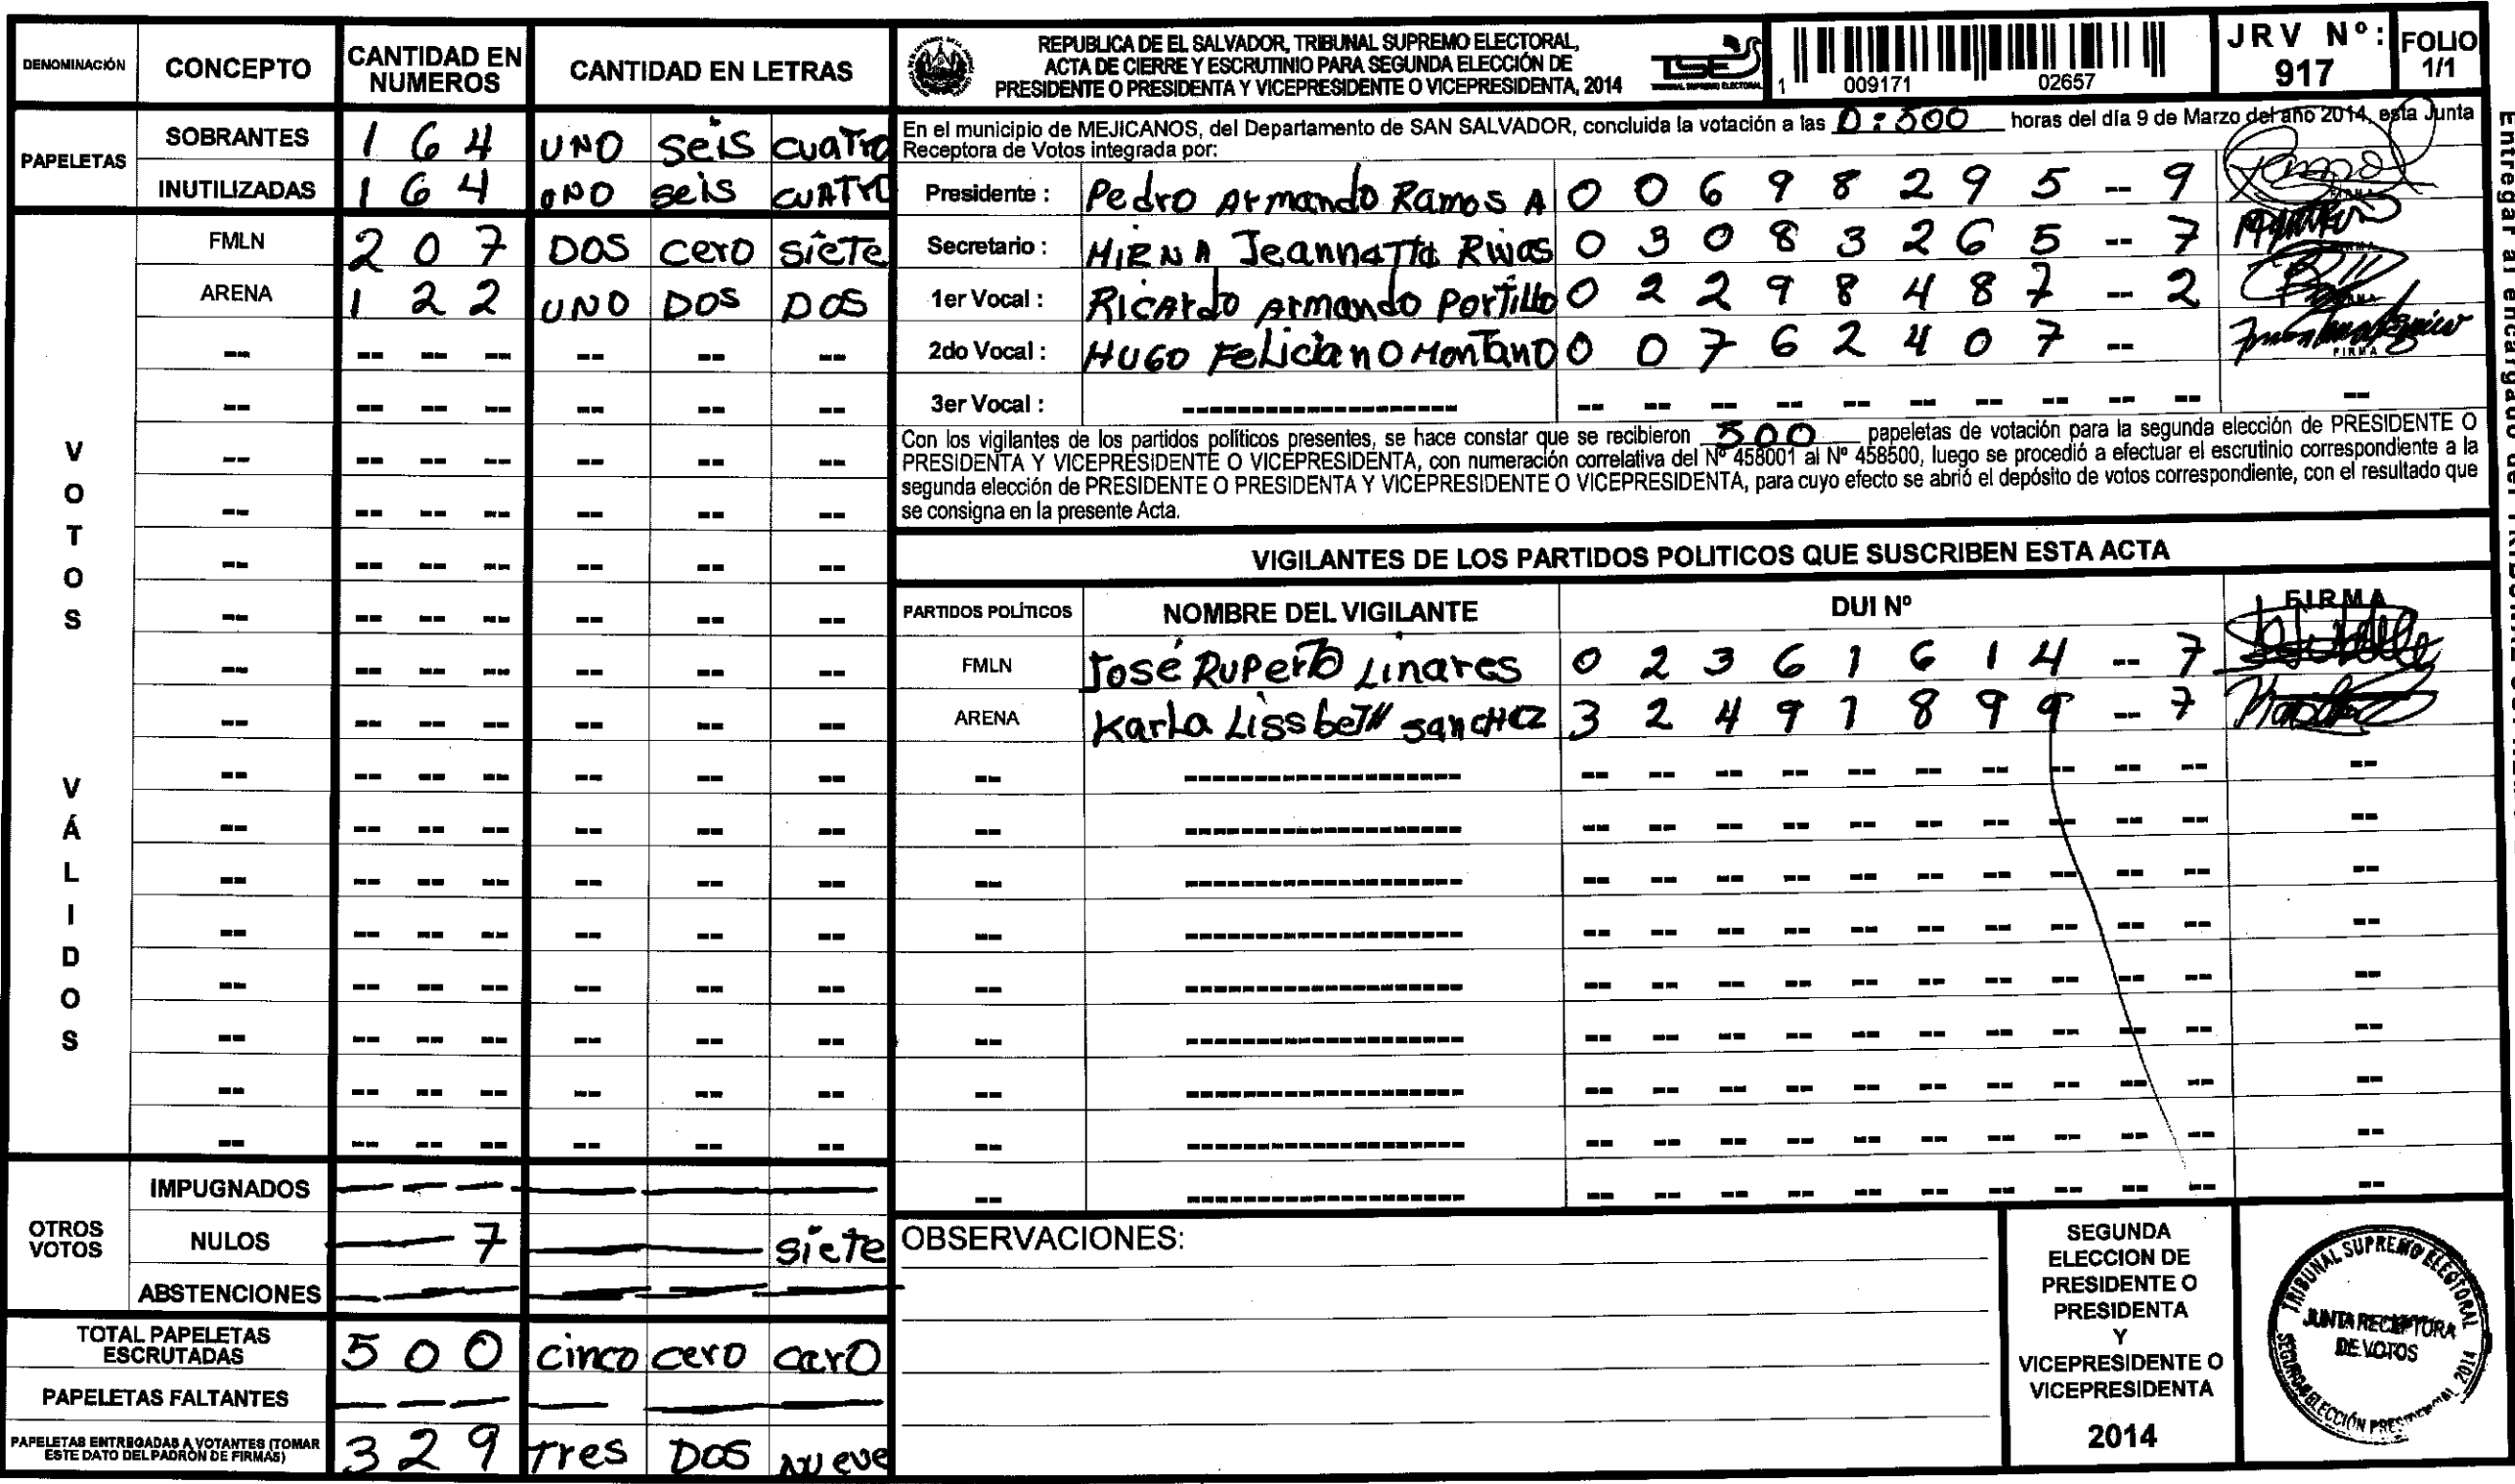 DENOMINACIÓN CONCEPTO CANTIDAD EN NUMEROS CANTIDAD EN LETRAS
PAPELETAS
SOBRANTES 1 6 4 UNO seis cuatro
INUTILIZADAS 1 6 4 UNO seis cuATro
VOTOS VÁLIDOS
FMLN 2 0 7 DOS cero siete
ARENA 1 2 2 UNO DOS DOS
OTROS VOTOS
IMPUGNADOS
NULOS 7 siete
ABSTENCIONES
TOTAL PAPELETAS ESCRUTADAS 5 0 0 cinco cero cero
PAPELETAS FALTANTES
PAPELETAS ENTREGADAS A VOTANTES (TOMAR ESTE DATO DEL PADRÓN DE FIRMAS) 3 2 9 tres DOS nueve
REPUBLICA DE EL SALVADOR, TRIBUNAL SUPREMO ELECTORAL,
ACTA DE CIERRE Y ESCRUTINIO PARA SEGUNDA ELECCIÓN DE
PRESIDENTE O PRESIDENTA Y VICEPRESIDENTE O VICEPRESIDENTA, 2014
TSE
TRIBUNAL SUPREMO ELECTORAL
1 009171 02657
JRV Nº: 917
FOLIO 1/1
En el municipio de MEJICANOS, del Departamento de SAN SALVADOR, concluida la votación a las horas del día 9 de Marzo del año 2014, esta Junta
Receptora de Votos integrada por:
Presidente : Pedro Armando Ramos A 0 0 6 9 8 2 9 5 -- 9
Secretario : MIRNA Jeannette Rivas 0 3 0 8 3 2 6 5 -- 7
1er Vocal : Ricardo Armando Portillo 0 2 2 9 8 4 8 7 -- 2
2do Vocal : HUGO Feliciano Montano 0 0 7 6 2 4 0 7 --
FIRMA
3er Vocal :
Con los vigilantes de los partidos políticos presentes, se hace constar que se recibieron 500 papeletas de votación para la segunda elección de PRESIDENTE O
PRESIDENTA Y VICEPRESIDENTE O VICEPRESIDENTA, con numeración correlativa del Nº 458001 al Nº 458500, luego se procedió a efectuar el escrutinio correspondiente a la
segunda elección de PRESIDENTE O PRESIDENTA Y VICEPRESIDENTE O VICEPRESIDENTA, para cuyo efecto se abrió el depósito de votos correspondiente, con el resultado que
se consigna en la presente Acta.
VIGILANTES DE LOS PARTIDOS POLITICOS QUE SUSCRIBEN ESTA ACTA
PARTIDOS POLÍTICOS NOMBRE DEL VIGILANTE DUI Nº FIRMA
FMLN José Ruperto Linares 0 2 3 6 1 6 1 4 -- 7
ARENA Karla Lissbeth sanchez 3 2 4 9 1 8 9 9 -- 7
OBSERVACIONES:
SEGUNDA
ELECCION DE
PRESIDENTE O
PRESIDENTA
Y
VICEPRESIDENTE O
VICEPRESIDENTA
2014
TRIBUNAL SUPREMO ELECTORAL
JUNTA RECEPTORA
DE VOTOS
SEGUNDA ELECCIÓN PRESIDENCIAL 2014
Entregar al encargado del